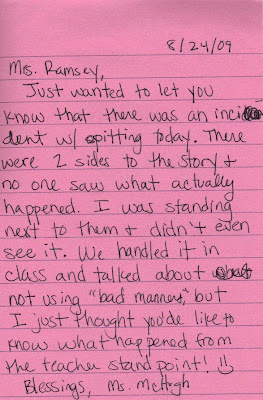 8/24/09
Mrs. Ramsey,
Just wanted to let you
know that there was an inci
dent w/ spitting today. There
were 2 sides to the story &
no one saw what actually
happened. I was standing
next to them & didn't even
see it. We handled it in
class and talked about
not using "bad manners," but
I just thought you'de like to
know what happened from
the teacher standpoint! :)
Blessings, Ms. McHugh